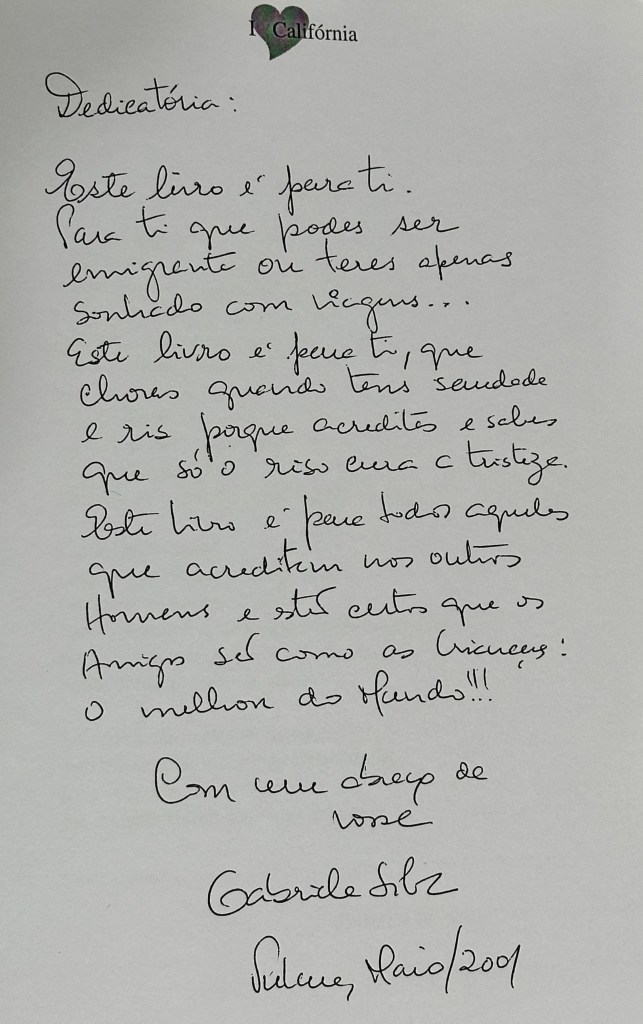 I Califórnia
Dedicatória:
Este livro é para ti.
Para ti que podes ser
emigrante ou teres apenas
sonhado com viagens...
Este livro é para ti, que
choras quando tens saudade
e ris porque acreditas e sabes
que só o riso cura a tristeza.
Este livro é para todos aqueles
que acreditam nos outros
Homens e estão certos que os
Amigos são como as Crianças:
O melhor do Mundo!!!
Com um abraço da
vossa
Gabriela Silva
Tulare, Maio/2001